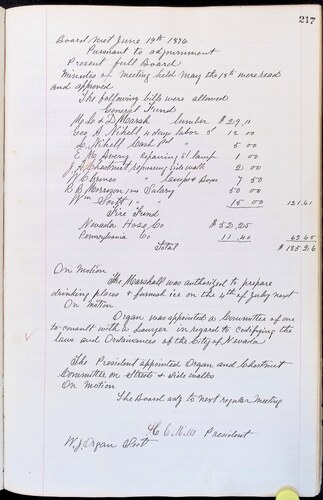 217
Board met June 19th 1896
Pursuant to adjournment
Present full Board
Minutes of Meeting held May the 18th were read
and approved
The following bills were allowed
General Fund
M. L. & D. Marsh lumber $29.11
Geo A. Nihell 4 days labor st 12 00
L. Nihell Cash Pd " 5 00
E. M. Avery repairing st lamp 1 00
J. A. Chestnut repairing sidewalk 2 00
W. G. Jones " Lamps & Boxes 7 50
R B Morrow 1 mo Salary 50 00
Wm Scott " " 15 00 121.61
Fire Fund
Nevada Hose Co $52.25
Pennsylvania Co 11.40 63.65
Total $185.26
On Motion
The Marshall was authorized to prepare
drinking places & furnish ice on the 4th of July next
On Motion
Organ was appointed a Committee of one
to consult with a Lawyer in regard to codifying the
laws and Ordinances of the City of Nevada
The President appointed Organ and Chestnut
Committee on Streets & Side walks
On Motion
The Board adj to next regular Meeting
President
W. J. Organ